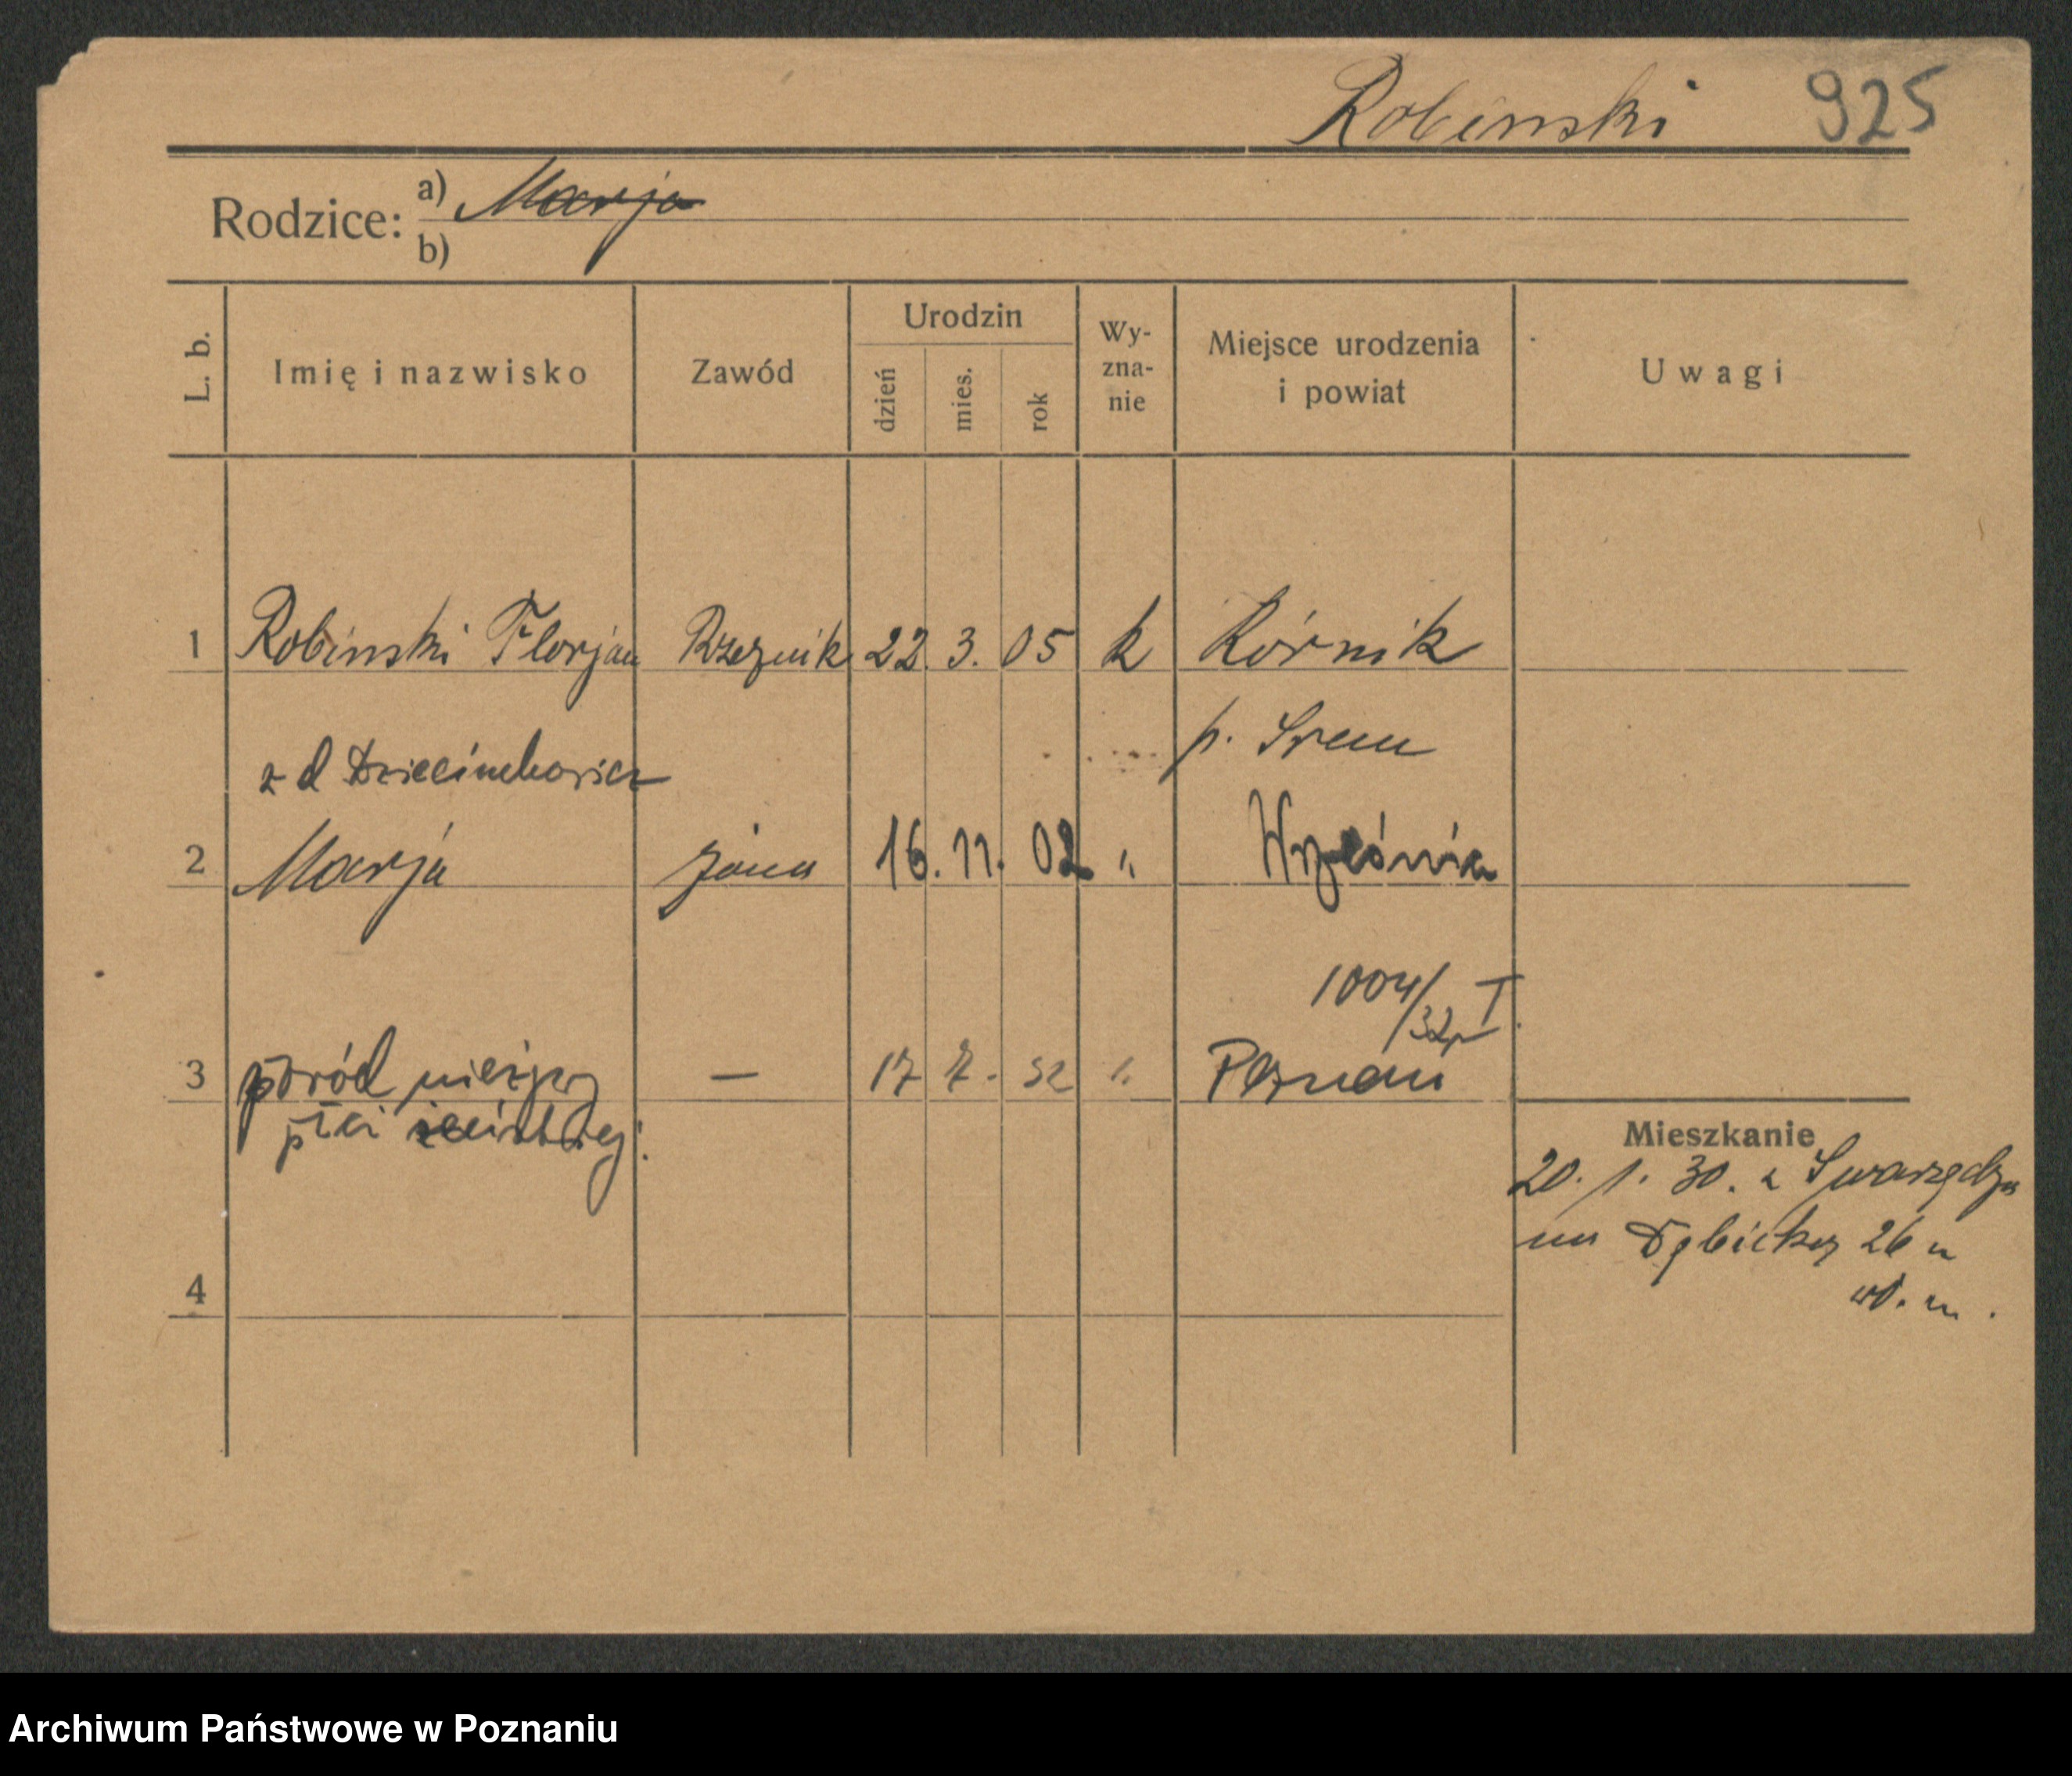 Robinski 925
Rodzice: a) Marja
b)
L. b. Imię i nazwisko Zawód Urodzin dzień mies. rok Wy-zna-nie Miejsce urodzenia i powiat Uwagi
1 Robinski Florjan Rzeźnik 22. 3. 05 k Kórnik
p. Śrem
z d
2 Marja żona 16. 11. 02 "
1004/32 I
3 poród nieżywy — 17 7. 32 " Poznań
płci żeńskiej.
Mieszkanie
20. 1. 30. z Swarzędza
na 26
4
Archiwum Państwowe w Poznaniu